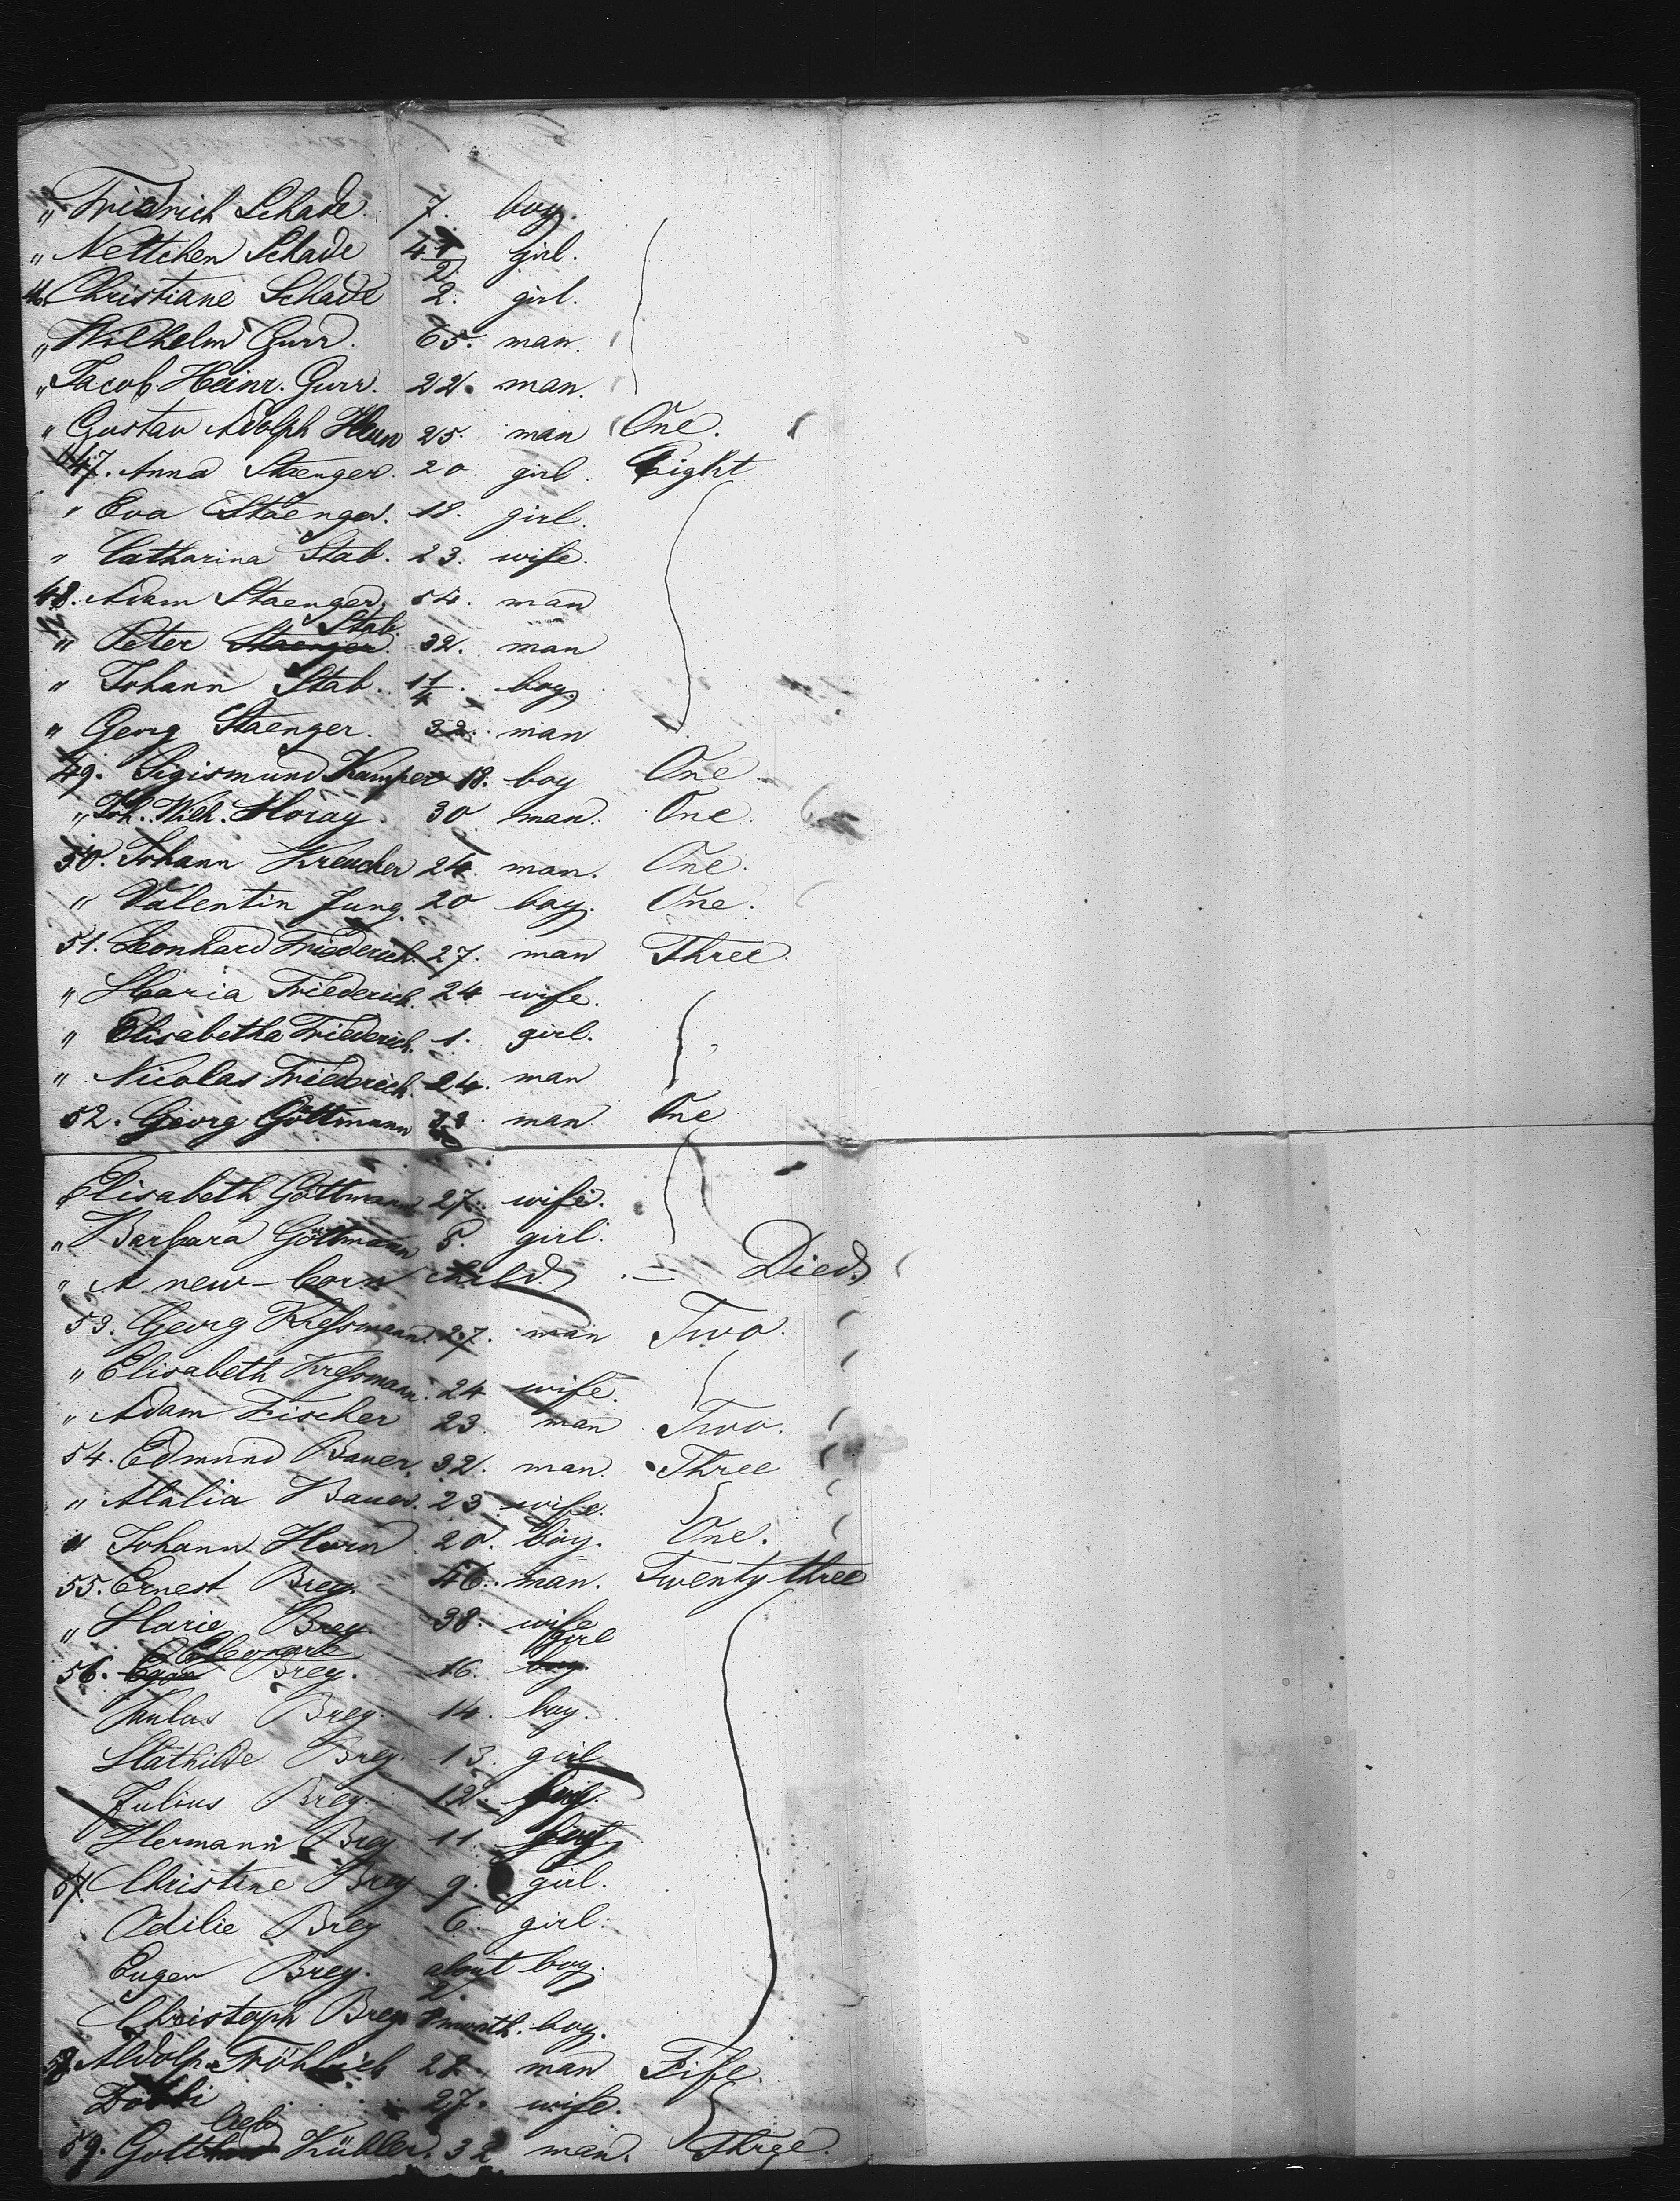 " Friedrich Schade. 7. boy.
" Nettchen Schade 4 1/2 girl.
46. Christiane Schade 2. girl.
" Wilhelm Gurr. 65. man.
" Jacob Heinr. Gurr. 22. man.
" Gustav Adolph 25. man One.
47. Anna Staenger. 20. girl. Eight
" Eva Staenger. 18. girl.
" Catharina Stab. 23. wife.
48. Adam Staenger. 54. man
Stab.
" Peter Staenger. 32. man
" Johann Stab. 1 1/4. boy.
" Georg Staenger. 32. man
49. Sigismund Kamper 18. boy One.
" Joh. Wilh. Moray. 30 man. One.
50. Johann Kreucher 24. man. One.
" Valentin Jung. 20 boy. One.
51. Leonhard Friederich. 27. man Three.
" Maria Friederich. 24 wife.
" Elisabetha Friederich. 1. girl.
" Nicolas Friederich. 24. man
52. Georg Göttmann man One
Elisabeth Göttmann 27. wife.
" Barbara Göttmann girl.
" A new-born child. — Died.
53. Georg Kressmann. 27. man Two.
" Elisabeth Kressmann. 24 wife.
" Adam Fischer 23. man Two.
54. Edmund Bauer. 32. man. Three
" Atalia Bauer. 23 wife.
" Johann Horn 20. boy. One.
55. Ernest Brey. 46. man. Twenty three
" Marie Brey. 38. wife
girl
56. Brey. 16. boy.
Paulus Brey. 14. boy.
Mathilde Brey. 13. girl
Julius Brey. 12. boy.
Hermann Brey 11. boy
57. Christine Brey 9. girl.
Odilie Brey 6. girl.
Eugen Brey. about 2. boy.
Christoph Brey month. boy.
58. Aldolp Fröhlich 28. man Fife.
27. wife.
lieb
59. Gott Kübler. 32 man. Three.